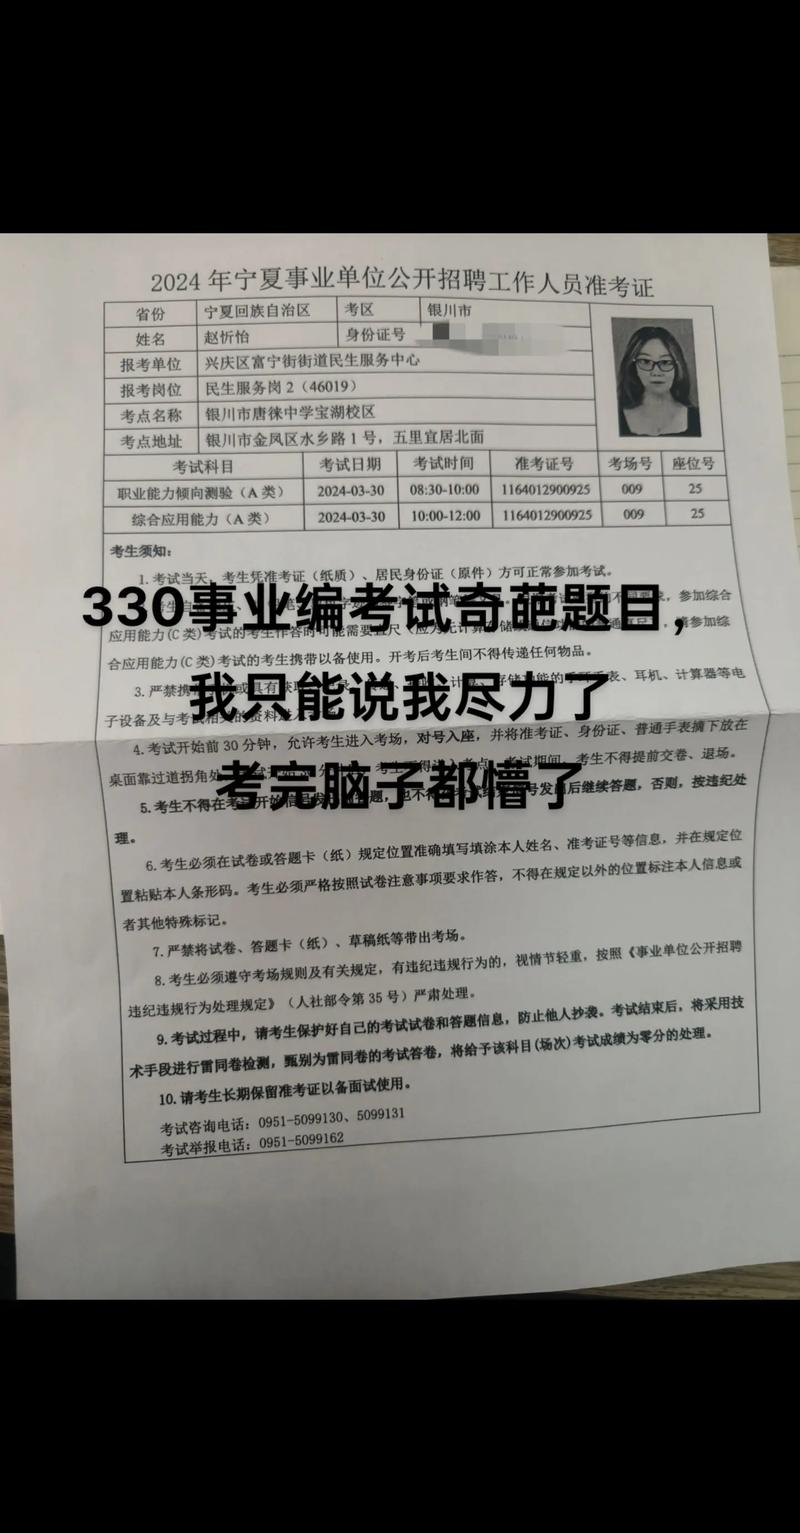 2024年宁夏事业单位公开招聘工作人员准考证
省份 宁夏回族自治区 考区 银川市
姓名 赵忻怡 身份证号
报考单位 兴庆区富宁街街道民生服务中心
报考岗位 民生服务岗2（46019）
考点名称 银川市唐徕中学宝湖校区
考点地址 银川市金凤区水乡路1号，五里宜居北面
考试科目 考试日期 考试时间 准考证号 考场号 座位号
职业能力倾向测验（A类） 2024-03-30 08:30-10:00 1164012900925 009 25
综合应用能力（A类） 2024-03-30 10:00-12:00 1164012900925 009 25
考生须知：
1.考试当天，考生凭准考证（纸质）、居民身份证（原件）方可正常参加考试。
330事业编考试奇葩题目，
参加综合
应用能力(C类)考试的考生作答时可能需要
请参加综
合应用能力(C类)考试的考生携带以备使用。开考后考生间不得传递任何物品。
我只能说我尽力了
3.严禁携
手表、耳机、计算器等电
子设备及与考试相关的资料进
4.考试开始前30分钟，允许考生进入考场，对号入座，并将准考证、身份证、普通手表摘下放在
桌面靠过道拐角处
考试期间，考生不得提前交卷、退场。
考完脑子都懵了
5.考生不得在考试开始信号发
后继续答题，否则，按违纪处
理。
6.考生必须在试卷或答题卡（纸）规定位置准确填写填涂本人姓名、准考证号等信息，并在规定位
置粘贴本人条形码。考生必须严格按照试卷注意事项要求作答，不得在规定以外的位置标注本人信息或
者其他特殊标记。
7.严禁将试卷、答题卡（纸）、草稿纸等带出考场。
8.考生必须遵守考场规则及有关规定，有违纪违规行为的，视情节轻重，按照《事业单位公开招聘
违纪违规行为处理规定》（人社部令第35号）严肃处理。
9.考试过程中，请考生保护好自己的考试试卷和答题信息，防止他人抄袭。考试结束后，将采用技
术手段进行雷同卷检测，甄别为雷同卷的考试答卷，将给予该科目(场次)考试成绩为零分的处理。
10.请考生长期保留准考证以备面试使用。
考试咨询电话：0951-5099130、5099131
考试举报电话：0951-5099162